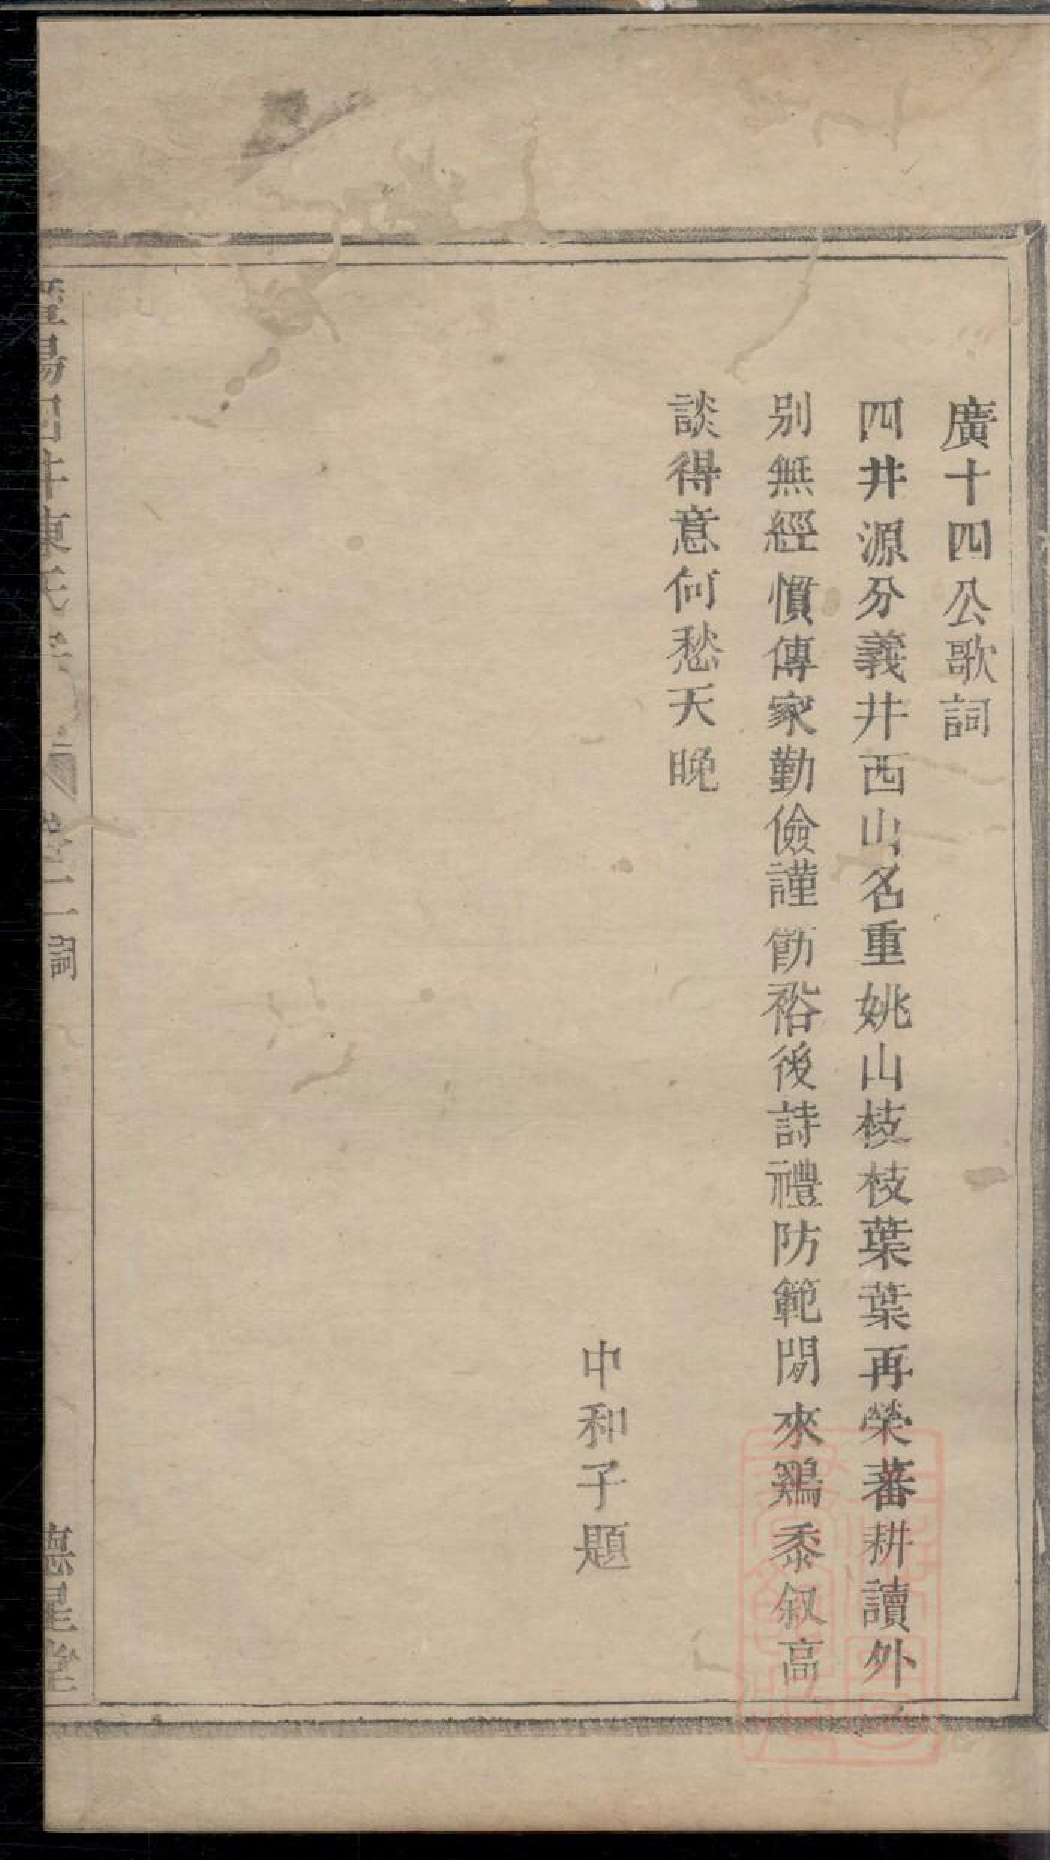 廣十四公歌詞
四井源分義井西山名重姚山枝枝葉葉再榮蕃耕讀外
别無經慣傳家勤儉謹勤裕後詩禮防範閒來鷄黍叙高
談得意何愁天晚
中和子題
陽四井陳氏
卷二 詞
德星堂